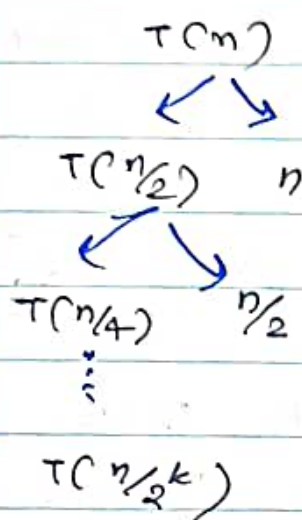 T(n)
T(n/2) n
T(n/4) n/2
T(n/2^k)